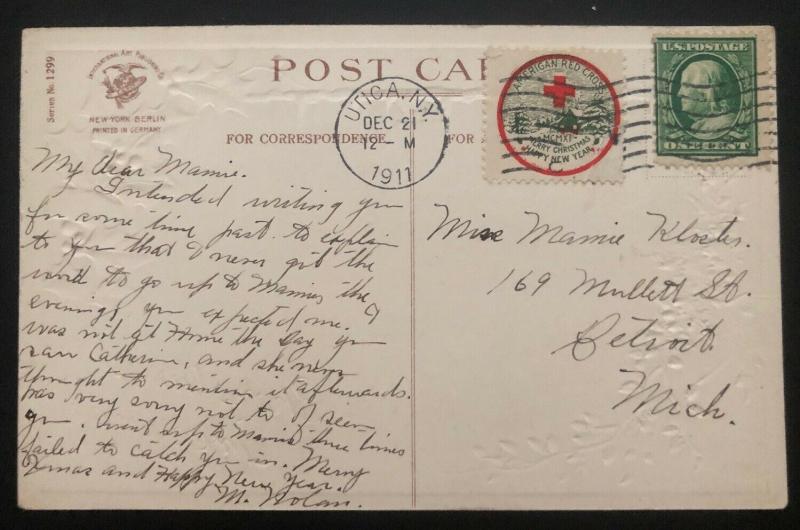 Series No. 1299
INTERNATIONAL ART PUBLISHING Co
NEW-YORK BERLIN
PRINTED IN GERMANY
POST CA
FOR CORRESPONDENCE
FOR
UTICA, N.Y.
DEC 21
12 - M
1911
AMERICAN RED CROSS
MCMXI
MERRY CHRISTMAS
HAPPY NEW YEAR
U.S. POSTAGE
ONE CENT
My Dear Mamie.
Intended writing you
for some time past to explain
to you that I never got the
word to go up to Mamies the
evenings you expected me. I
was not at Home the Day you
saw Catherine, and she never
thought to mention it afterwards.
was very sorry not to of seen
you. went up to Mamies three times
failed to catch you in. Merry
Xmas and Happy New Year.
M. Nolan.
Miss Mamie Kloster.
169 Mullett St.
Detroit
Mich.